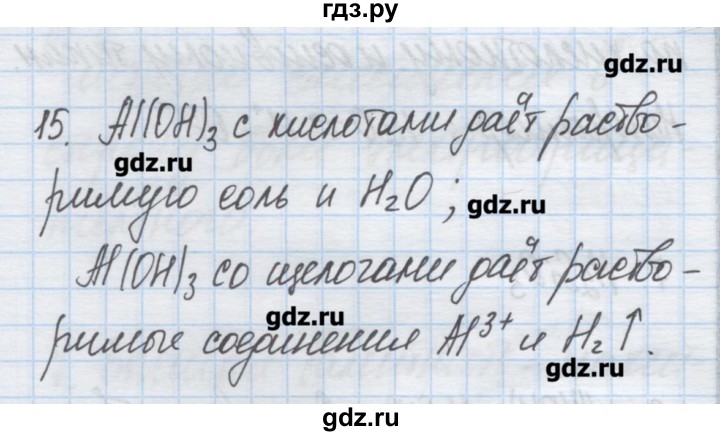 гдз.ру
gdz.ru
15. Al(OH)₃ с кислотами даёт раство-
gdz.ru
римую соль и H₂O; gdz.ru
Al(OH)₃ со щелочами даёт раство-
gdz.ru
римые соединения Al³⁺ и H₂↑.
gdz.ru
gdz.ru